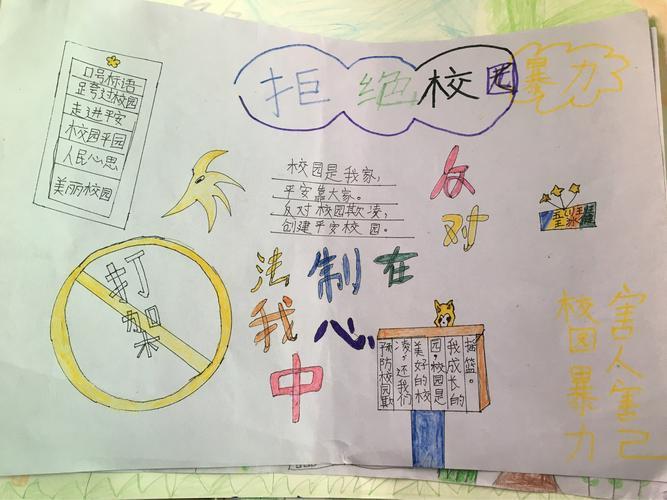 拒绝校园暴力
口号标语
跨过校园
走进平安
校园平园
人民心思
美丽校园
校园是我家，
平安靠大家。
反对校园欺凌，
创建平安校园。
反对
打架
法制在
我心
中
预防校园欺
凌，还我们
美好的校
园，校园是
我成长的
摇篮。
校园暴力
害人害己